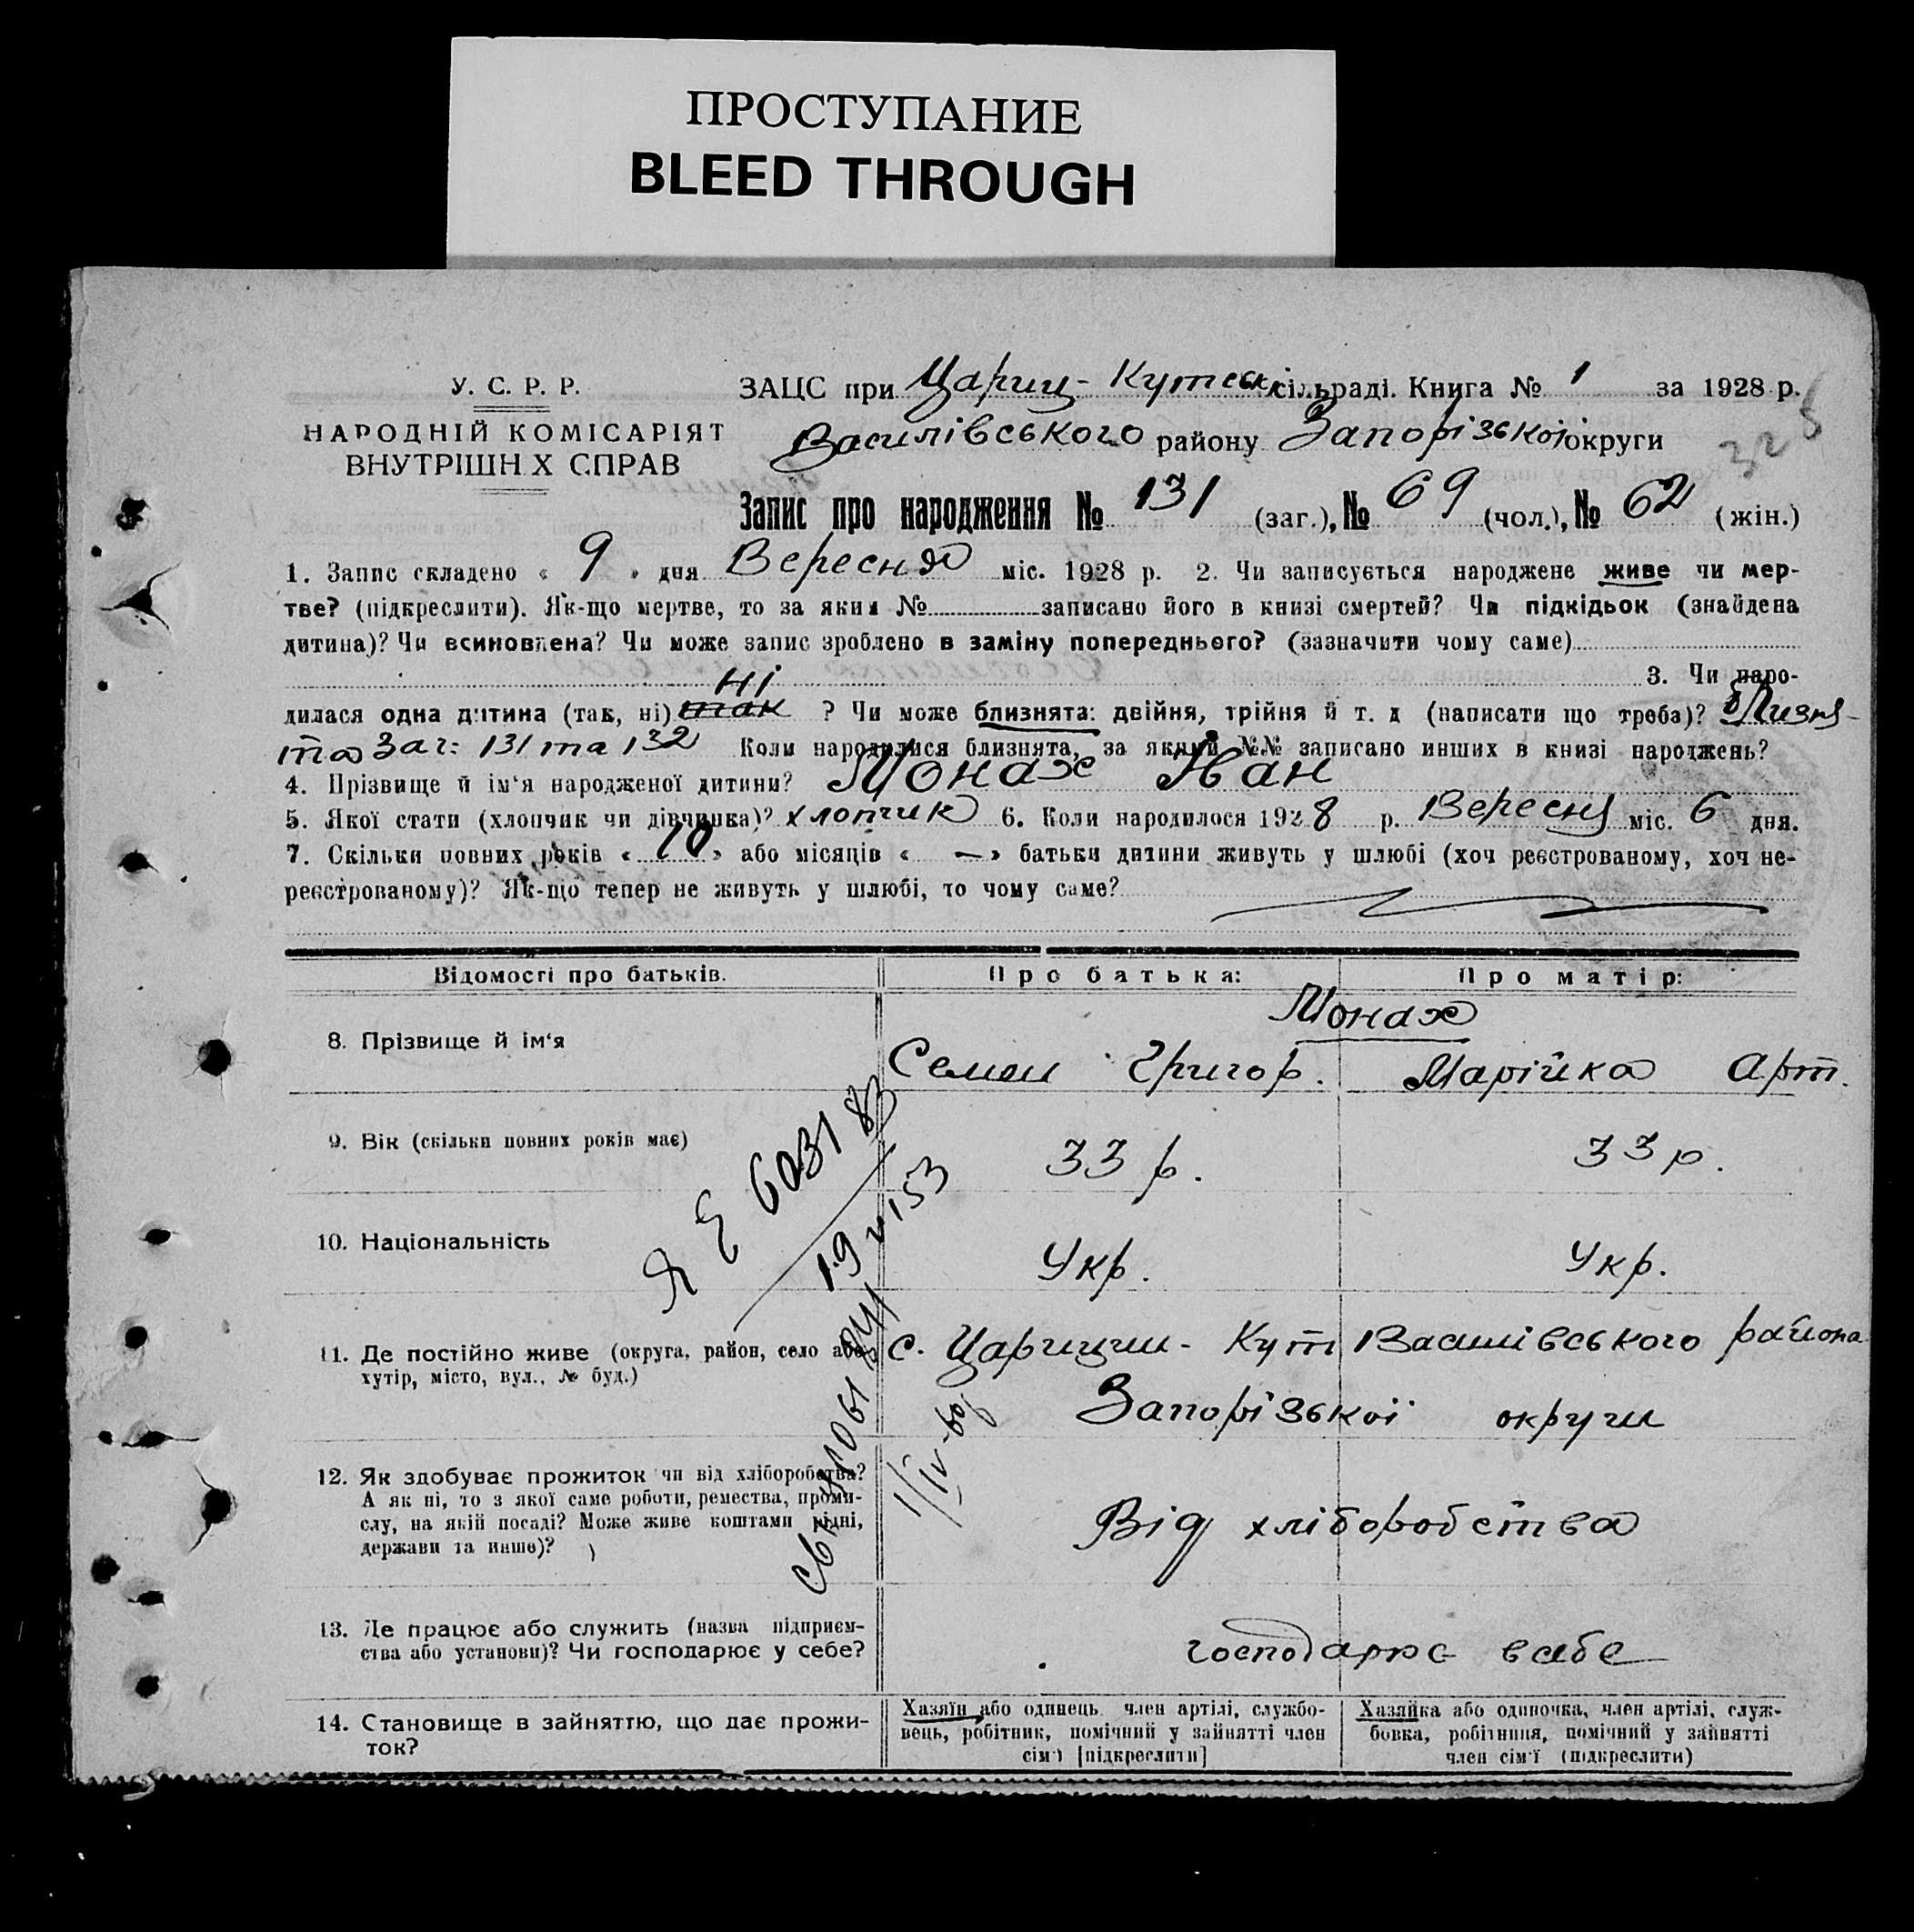 ПРОСТУПАНИЕ
BLEED THROUGH
У. С. Р. Р.
НАРОДНІЙ КОМІСАРІЯТ
ВНУТРІШН Х СПРАВ
ЗАЦС при Цариц-Кутські сільраді. Книга № 1 за 1928 р.
Василівського району Запорізької округи
Запис про народження № 131 (заг.), № 69 (чол.), № 62 (жін.)
1. Запис складено « 9 » дня Вересня міс. 1928 р. 2. Чи записується народжене живе чи мер-
тве? (підкреслити). Як-що мертве, то за яким № записано його в книзі смертей? Чи підкідьок (знайдена
дитина)? Чи всиновлена? Чи може запис зроблено в заміну попереднього? (зазначити чому саме)
3. Чи наро-
ні
дилася одна дитина (так, ні) так ? Чи може близнята: двійня, трійня й т. д (написати що треба)? близня-
та Заг: 131 та 132 Коли народилися близнята, за якими №№ записано инших в книзі народжень?
4. Прізвище й ім'я народженої дитини? Монах Іван
5. Якої стати (хлопчик чи дівчинка)? хлопчик 6. Коли народилося 1928 р. Вересня міс. 6 дня.
7. Скільки повних років « 10 » або місяців « — » батьки дитини живуть у шлюбі (хоч реєстрованому, хоч не-
реєстрованому)? Як-що тепер не живуть у шлюбі, то чому саме?
Відомості про батьків.
Про батька:
Про матір:
8. Прізвище й ім'я
Монах
Семен Григор.
Марійка Арт.
9. Вік (скільки повних років має)
33 р.
33 р.
10. Національність
Укр.
Укр.
11. Де постійно живе (округа, район, село або
хутір, місто, вул., № буд.)
с. Царицин-Кут Василівського района
Запорізької округи
12. Як здобуває прожиток чи від хліборобства?
А як ні, то з якої саме роботи, ремества, проми-
слу, на якій посаді? Може живе коштами рідні,
держави та инше)?
Від хліборобства
13. Де працює або служить (назва підприєм-
ства або установи)? Чи господарює у себе?
господарює в себе
14. Становище в зайняттю, що дає прожи-
ток?
Хазяїн або одинець член артілі, службо-
вець, робітник, помічний у зайнятті член
сім'ї [підкреслити]
Хазяйка або одиночка, член артілі, служ-
бовка, робітниця, помічний у зайнятті
член сім'ї (підкреслити)